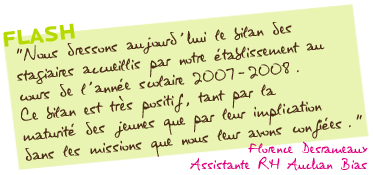 FLASH
"Nous dressons aujourd'hui le bilan des
stagiaires accueillis par notre établissement au
cours de l'année scolaire 2007-2008.
Ce bilan est très positif, tant par la
maturité des jeunes que par leur implication
dans les missions que nous leur avons confiées."
Florence Desrameaux
Assistante RH Auchan Bias